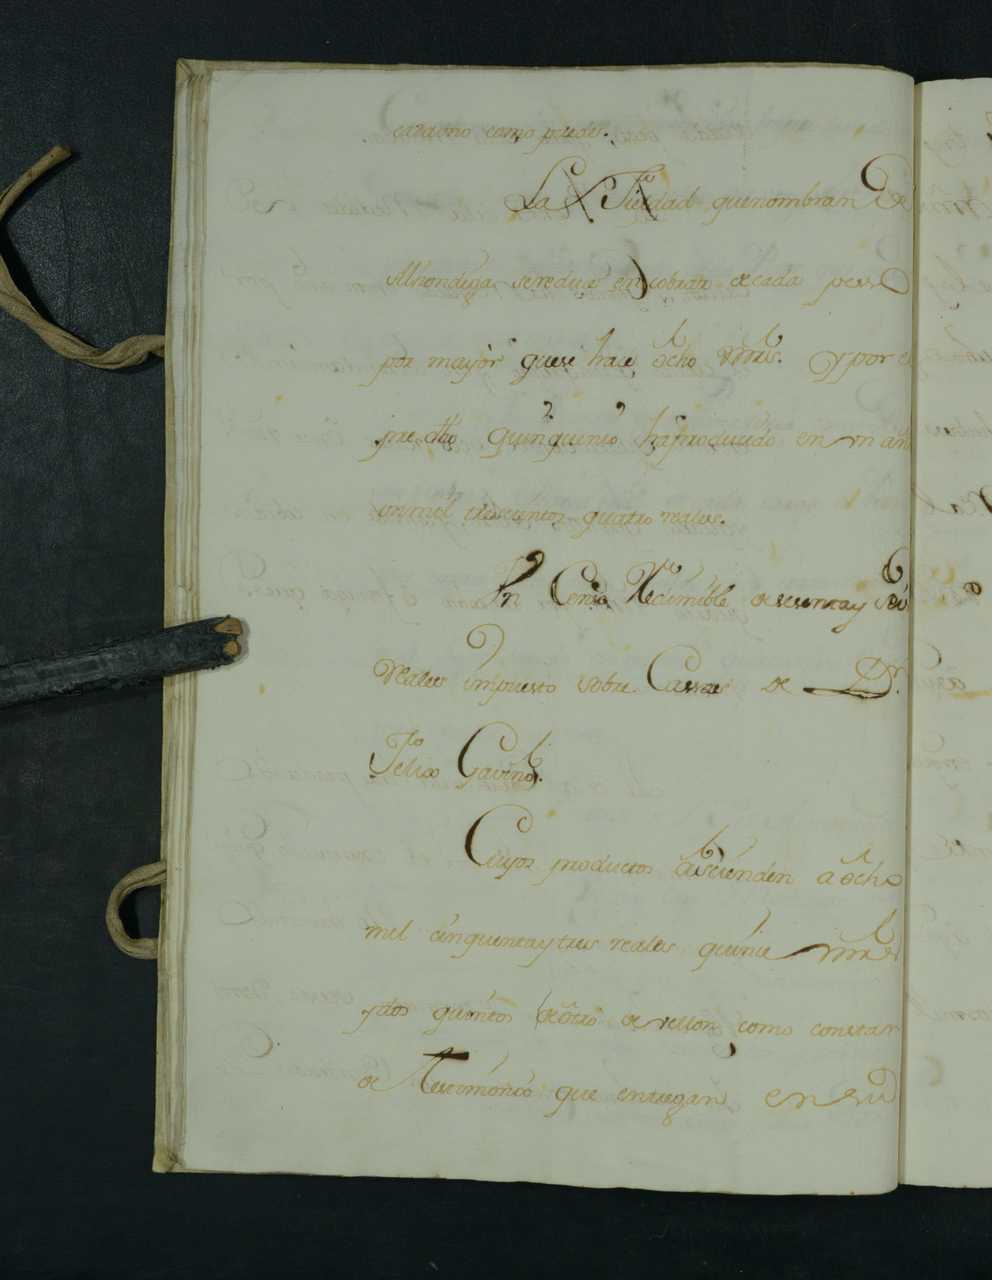 cada uno como puede.
La Fieldad que nombran de
Alhondiga se reduce en cobrar de cada peso
por mayor que se hace, ocho mrs. y por el
pre dho quinquenio ha producido en un año
un mil trescientos quatro reales.
Un Censo Redimible de sesenta y seis
reales impuesto sobre Cassas de Dn.
Felix Gavino.
Cuyos productos ascienden a ocho
mil cinquenta y tres reales quince mrs
y dos quintos de otro de vellon, como constar
de Testimonio que entregan en su